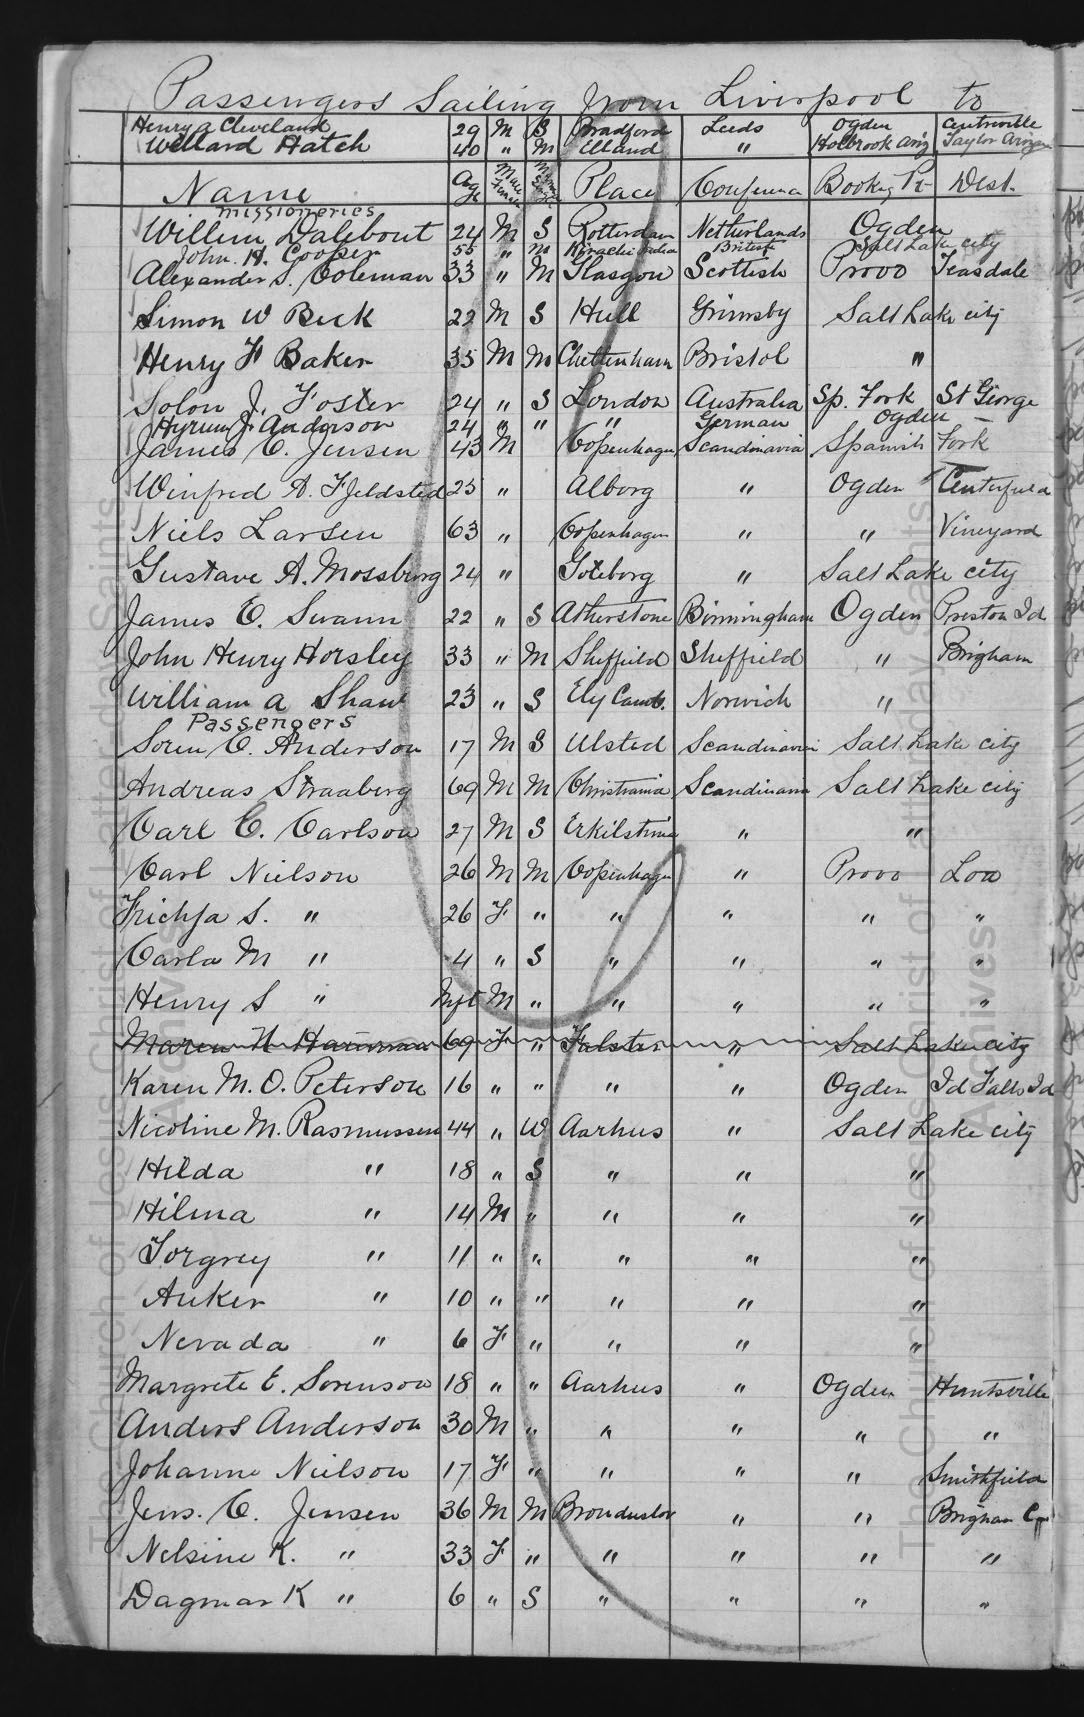 Passengers Sailing from Liverpool to
Henry A Cleveland 29 M S Bradford Leeds Ogden Centreville
Willard Hatch 40 " M Elland " Holbrook Ariz Taylor Arizona
Name Age Male Female Place Conference Book'g Pt Dest.
missioneries
Willem Dalebout 24 M S Rotterdam Netherlands Ogden
John. H. Cooper 55 " M Karachi India British Salt Lake city
Alexander S. Coleman 33 " M Glasgow Scottish Provo Teasdale
Simon W Beck 22 M S Hull Grimsby Salt Lake city
Henry F Baker 35 M M Cheltenham Bristol "
Solon J. Foster 24 " S London Australia Sp. Fork St George
Hyrum J. Anderson 24 " " " German Ogden –
James C. Jensen 43 M Copenhagen Scandinavia Spanish Fork
Winfred A. Fjeldsted 25 " Alborg " Ogden Centerfield
Niels Larsen 63 " Copenhagen " " Vineyard
Gustave A. Mossberg 24 " Goteborg " Salt Lake city
James E. Swann 22 " S Atherstone Birmingham Ogden Preston Id
John Henry Horsley 33 " M Sheffield Sheffield " Brigham
William A Shaw 23 " S Ely Camb. Norwich "
Passengers
Soren C. Anderson 17 M S Ulsted Scandinavia Salt Lake city
Andreas Straaberg 69 M M Christiania Scandinavia Salt Lake city
Carl C. Carlson 27 M S Erkilstuna " "
Carl Nielson 26 M M Copenhagen " Provo Loa
S. " 26 F " " " " "
Carla M " 4 " S " " " "
Henry S " Inft M " " " " "
Maren N 69 F " Falster " Salt Lake city
Karen M. O. Peterson 16 " " " " Ogden Id Falls Id
Nicoline M. Rasmussen 44 " W Aarhus " Salt Lake city
Hilda " 18 " S " " "
Hilma " 14 M " " " "
Torgney " 11 " " " " "
Anker " 10 " " " " "
Nevada " 6 F " " " "
Margrete E. Sorenson 18 " " Aarhus " Ogden Huntsville
Anders Anderson 30 M " " " " "
Johanne Nielson 17 F " " " " Smithfield
Jens. C. Jensen 36 M M " " Brigham
Nelsine K. " 33 F " " " " "
Dagmar K " 6 " S " " " "
The Church of Jesus Christ of Latter-day Saints
Archives
The Church of Jesus Christ of Latter-day Saints
Archives